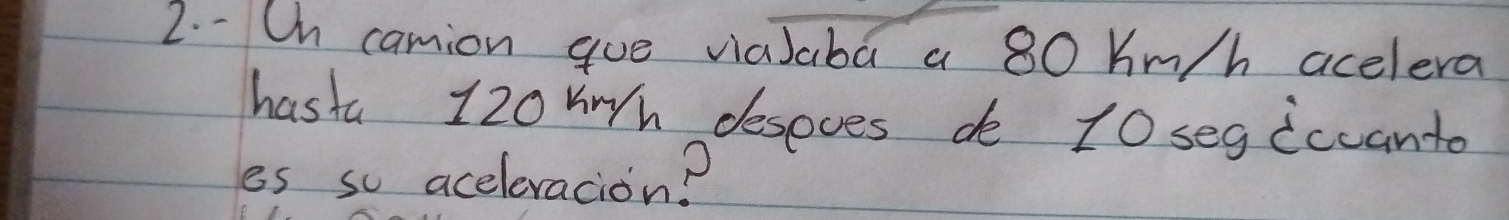 2.- Un camion que viajaba a 80 Km/h acelera
hasta 120 Km/h despues de 10 seg ¿cuanto
es su aceleración?